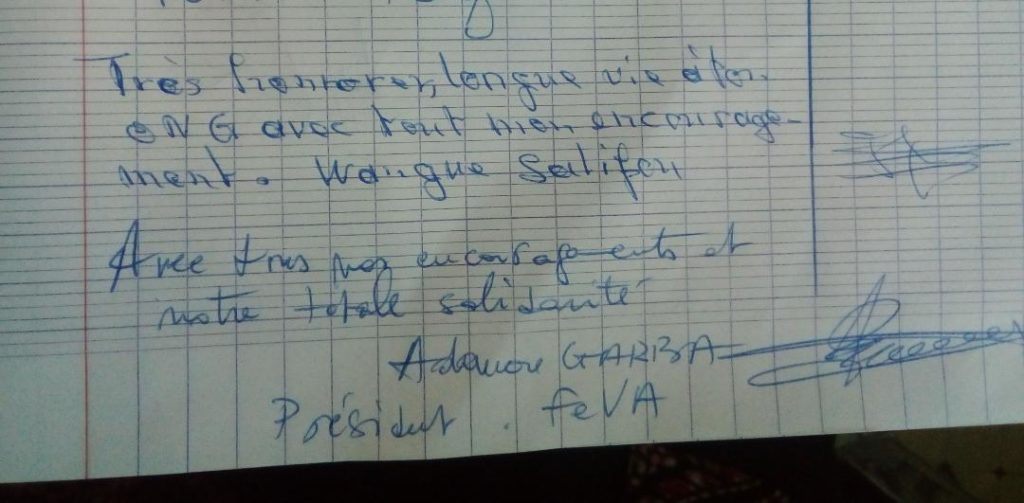 Très honnorer, longue vie à ton
ONG avec tout mon encourage-
ment. Wangue Salifou
Avec tous mes encouragements et
notre totale solidarité
Adamou GARBA
Président. FeVA